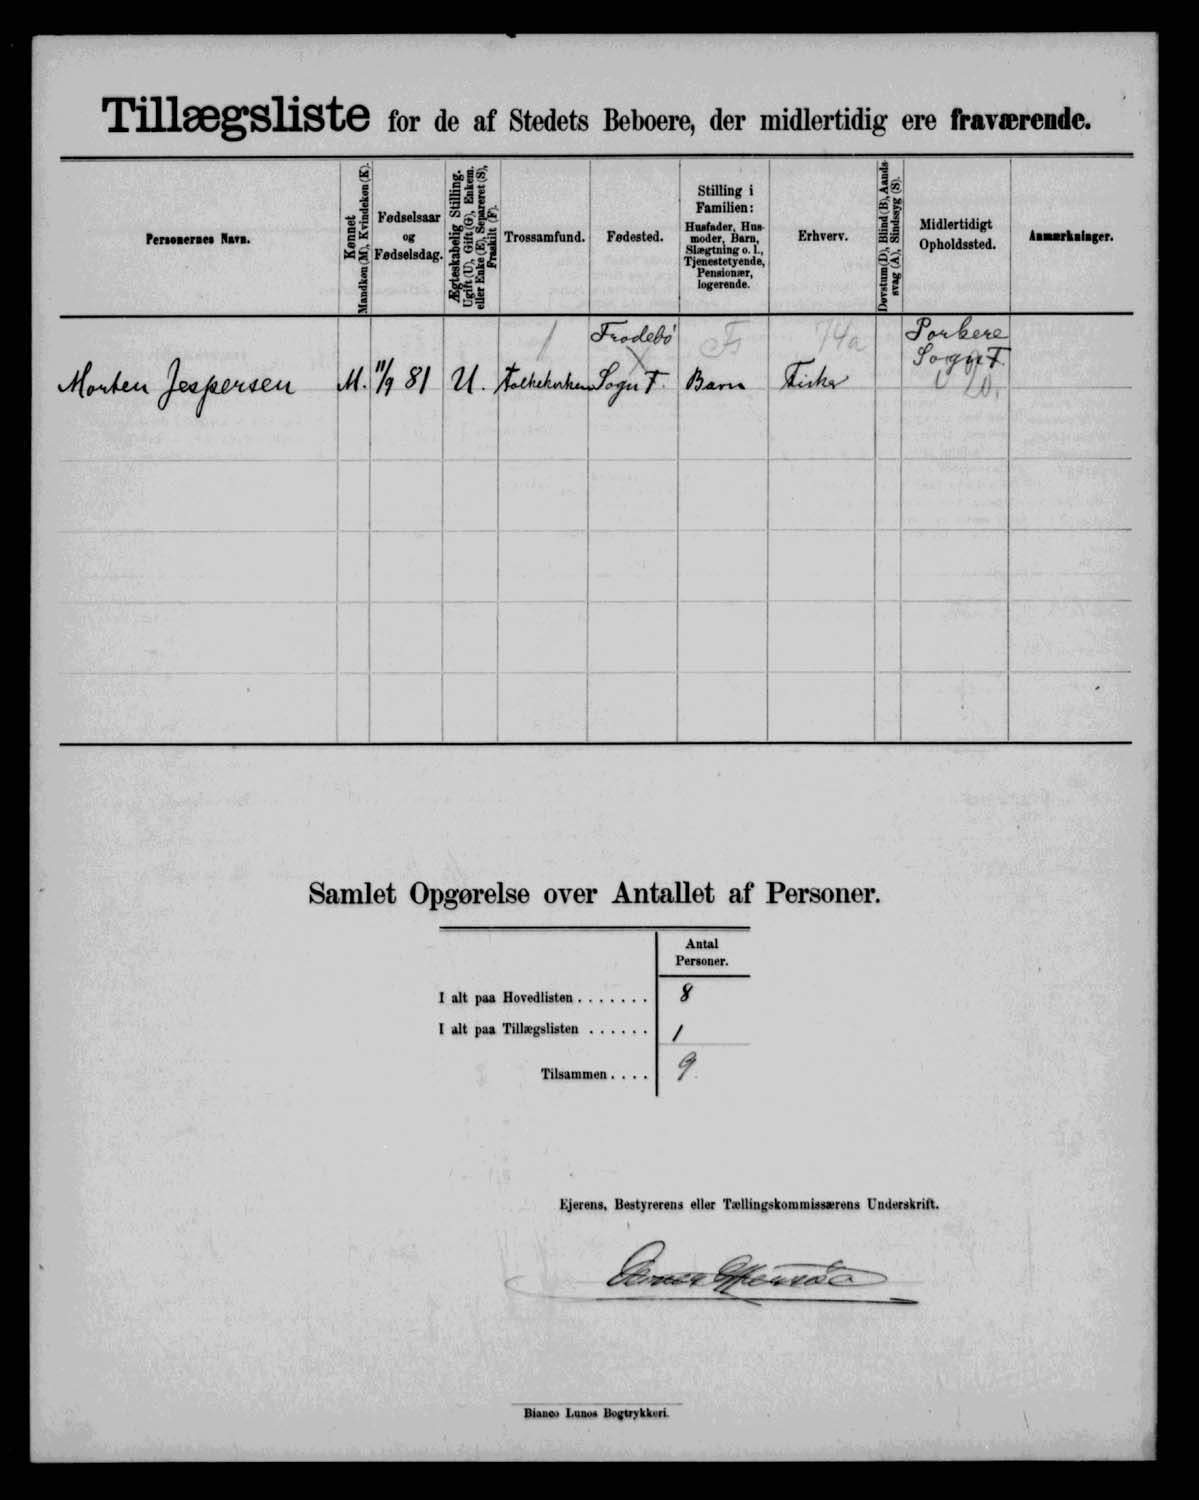 Tillægsliste for de af Stedets Beboere, der midlertidig ere fraværende.
Personernes Navn.
Kønnet
Mandkøn (M), Kvindekøn (K).
Fødselsaar
og
Fødselsdag.
Ægteskabelig Stilling.
Ugift (U), Gift (G), Enkem.
eller Enke (E), Separeret (S),
Fraskilt (F).
Trossamfund.
Fødested.
Stilling i
Familien:
Husfader, Hus-
moder, Barn,
Slægtning o. l.,
Tjenestetyende,
Pensionær,
logerende.
Erhverv.
Døvstum (D), Blind (B), Aands-
svag (A), Sindssyg (S).
Midlertidigt
Opholdssted.
Anmærkninger.
Morten Jespersen
M.
11/9 81
U.
1
Folkekirken
Frodebö
Sogn F.
Barn
74a
Fisker
Porkere
Sogn F.
20.
Samlet Opgørelse over Antallet af Personer.
Antal
Personer.
I alt paa Hovedlisten . . . . . . . 8
I alt paa Tillægslisten . . . . . . 1
Tilsammen . . . . 9
Ejerens, Bestyrerens eller Tællingskommissærens Underskrift.
Bianco Lunos Bogtrykkeri.